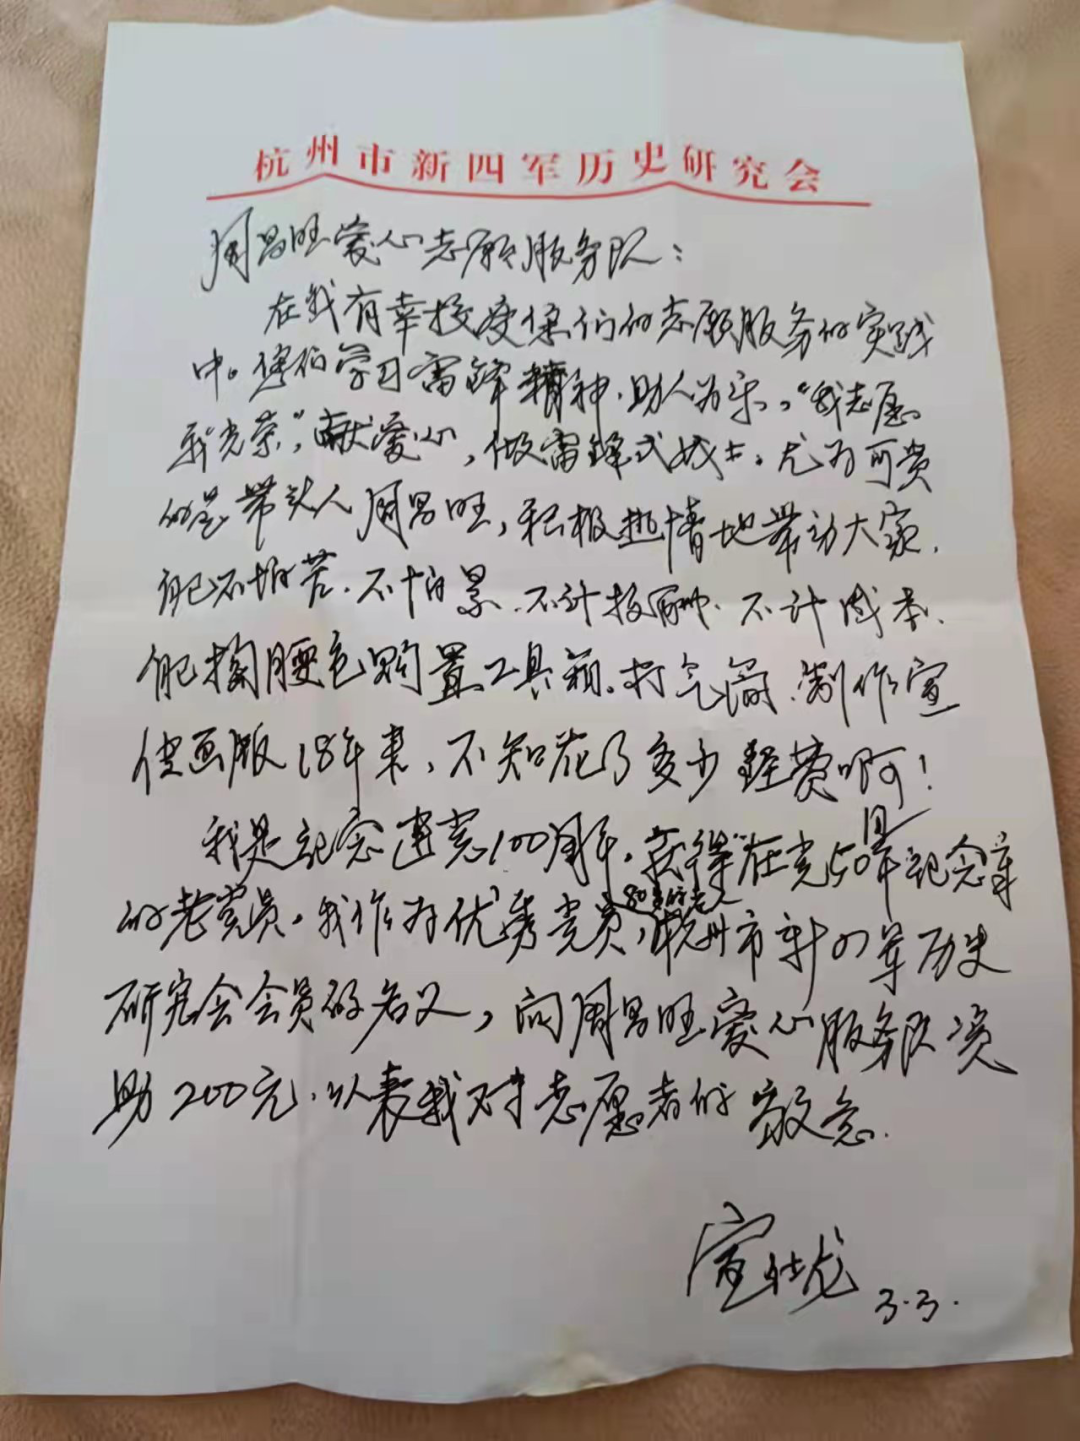 杭州市新四军历史研究会
周昌旺爱心志愿服务队：
在我有幸接受你们的志愿服务的实践
中。你们学习雷锋精神，助人为乐，“我志愿
我光荣”，献爱心，做雷锋式战士。尤为可贵
的是带头人周昌旺，积极热情地带动大家，
能不怕苦、不怕累、不计报酬、不计成本、
能掏腰包购置工具箱、打气筒、制作宣
传画版18年来，不知花了多少经费啊！
我是纪念建党100周年，获得“在党50周年纪念章
的老党员，我作为优秀党员，80岁的老人杭州市新四军历史
研究会会员的名义，向周昌旺爱心服务队资
助200元，以表我对志愿者的敬意。
宣壮龙 3.3.